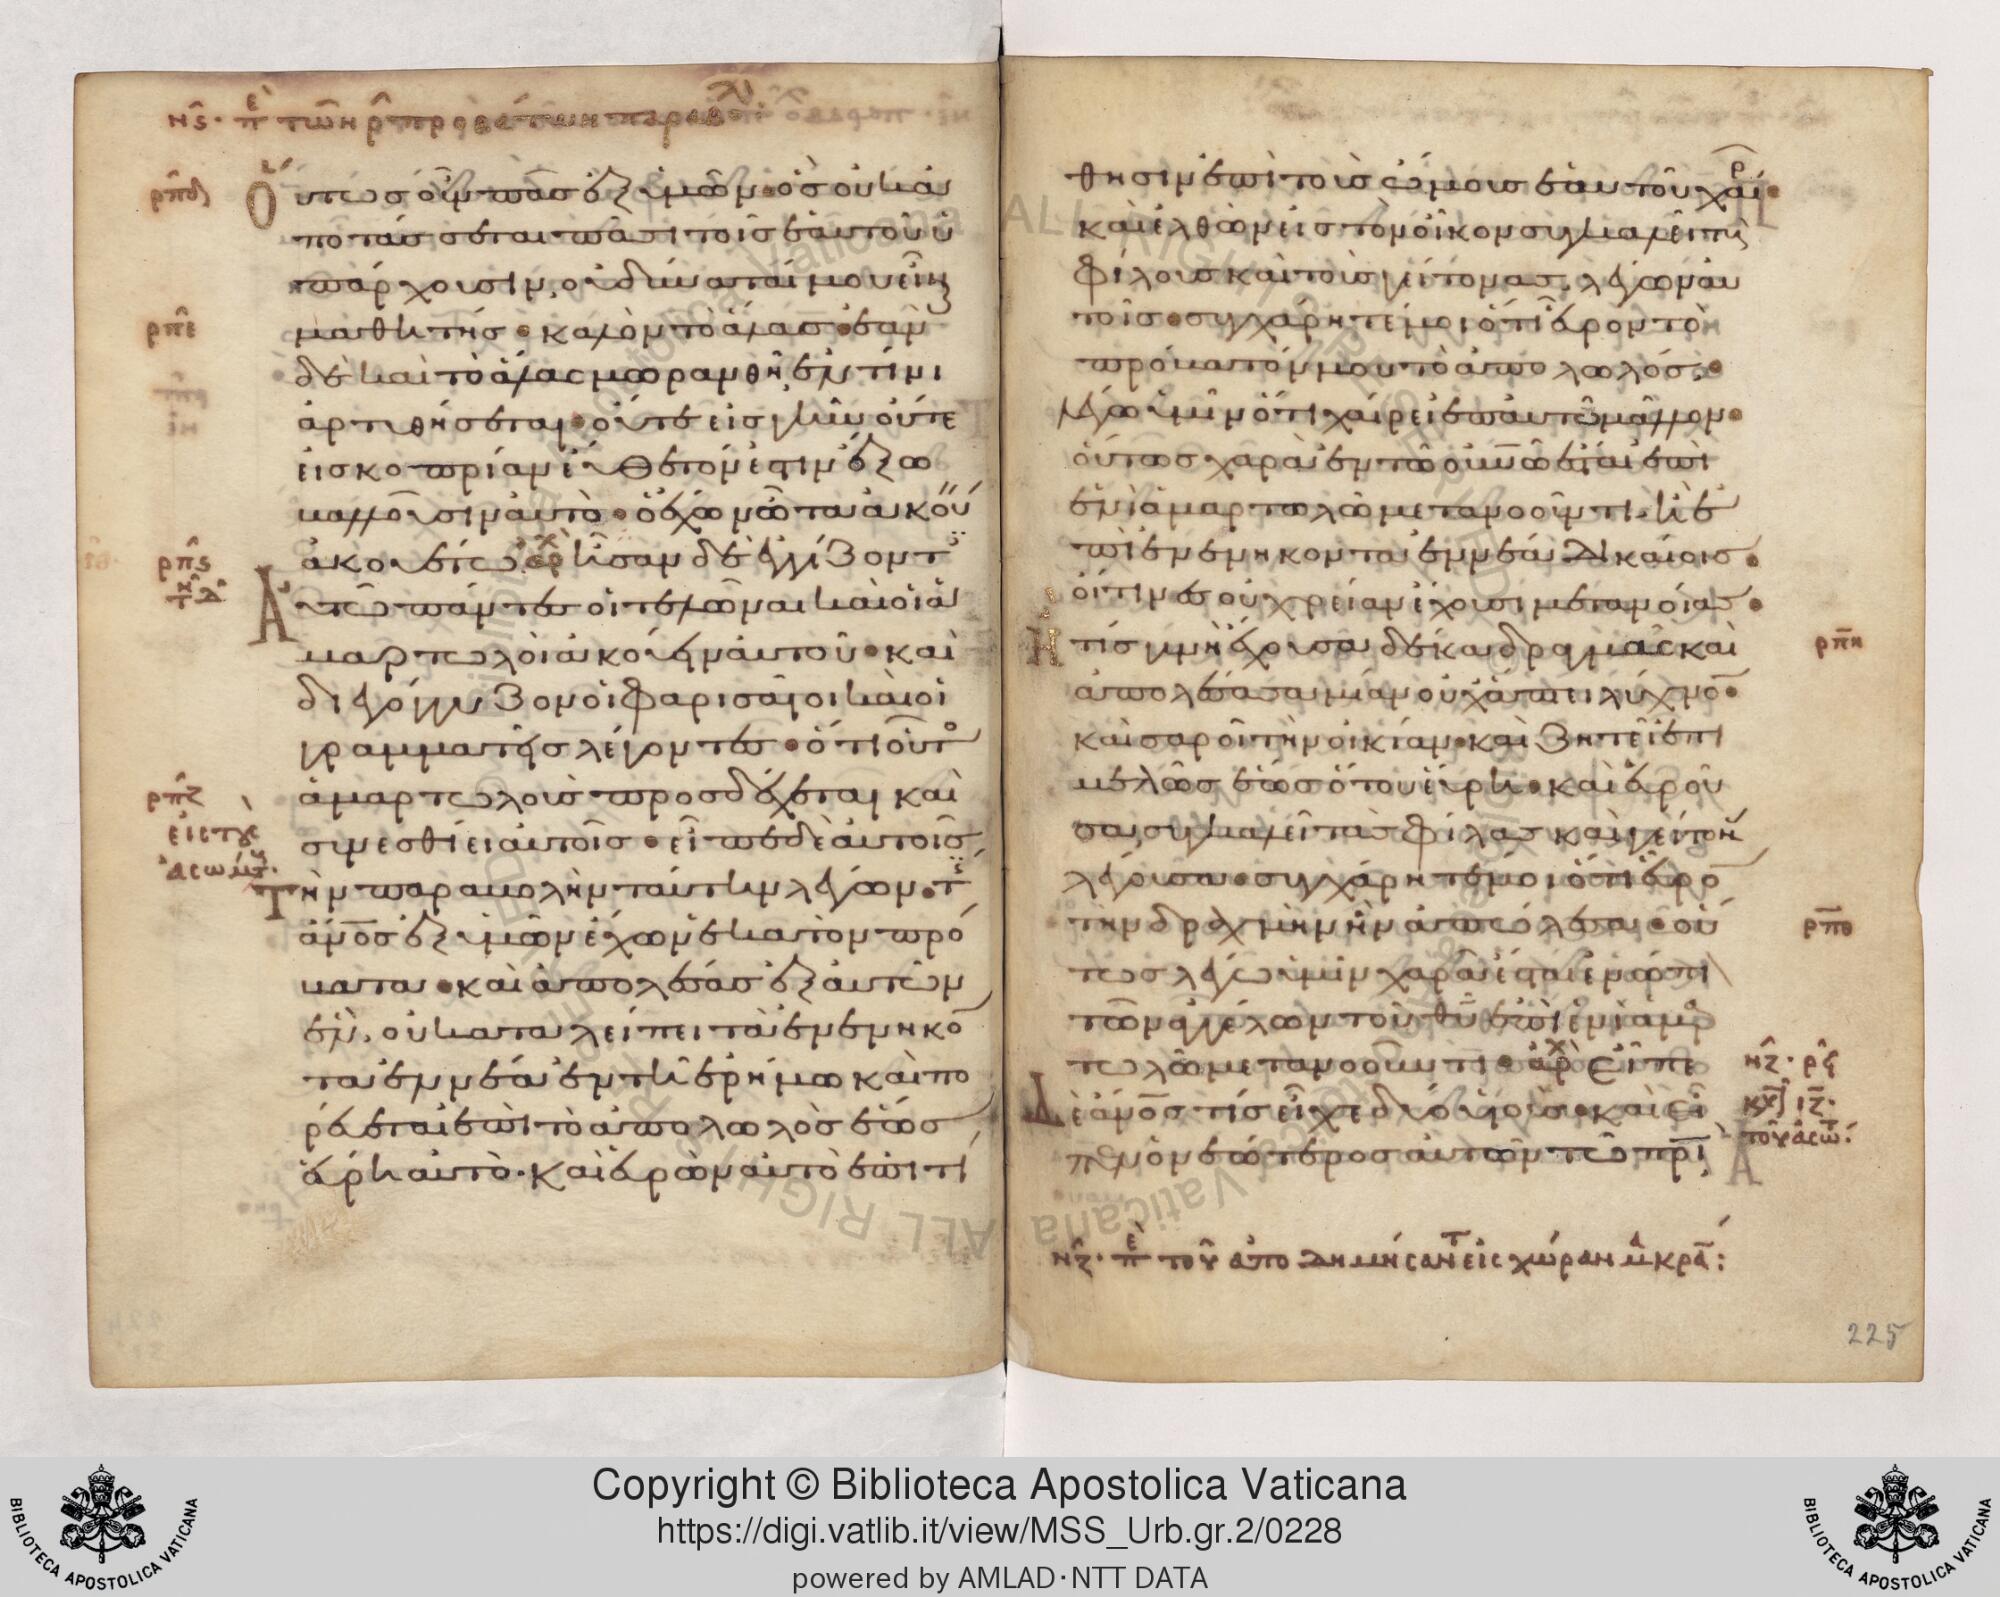 νϛ. πε τῶν ρ προβάτων παραβολή
ρπδ
Οὕτως οὖν πᾶς ἐξ ὑμῶν· ὃς οὐκ ἀ
ποτάσσεται πᾶσι τοῖς ἑαυτοῦ ὑ
πάρχουσιν, οὐ δύναταί μου εἶναι
ρπε
μαθητής· καλὸν τὸ ἅλας· ἐὰν
δὲ καὶ τὸ ἅλας μωρανθῆ, ἐν τίνι
ἀρτυθήσεται· οὔτε εἰς γῆν οὔτε
εἰς κοπρίαν εὔθετόν ἐστιν ἔξω
βάλλουσιν αὐτό· ὁ ἔχων ὦτα ἀκού
ρπϛ
ἀκουέτω· ἀρχ ἦσαν δὲ ἐγγίζοντ
Αὐτῶ πάντες οἱ τελῶναι καὶ οἱ ἁ
μαρτωλοὶ ἀκούειν αὐτοῦ· καὶ
διεγόγγυζον οἱ φαρισαῖοι καὶ οἱ
γραμματεῖς λέγοντες· ὅτι οὗτο
ρπζ
ἁμαρτωλοὺς προσδέχεται καὶ
συνεσθίει αὐτοῖς· εἶπε δὲ αὐτοῖς
Τὴν παραβολὴν ταύτην λέγων· τί
ἄνος ἐξ ὑμῶν ἔχων ἑκατὸν πρό
βατα· καὶ ἀπολέσας ἐξ αὐτῶν
ἕν, οὐ καταλείπει τὰ ἐνενηκο
ταεννέα ἐν τῆ ἐρήμω καὶ πο
ρεύεται ἐπὶ τὸ ἀπολωλὸς ἕως
εὕρη αὐτό· καὶ εὑρὼν αὐτὸ ἐπιτί
θησιν ἐπὶ τοὺς ὤμους ἑαυτοῦ χαί
καὶ ἐλθὼν εἰς τὸν οἶκον συγκαλεῖ τοὺς
φίλους καὶ τοὺς γείτονας, λέγων αὐ
τοῖς· συγχάρητέ μοι ὅτι εὗρον τὸ
πρόβατόν μου τὸ ἀπολωλός·
λέγω ὑμῖν ὅτι χαίρει ἐπ αὐτῶ μᾶλλον·
οὕτως χαρὰ ἐν τῶ οὐνῶ ἔσται ἐπὶ
ἑνὶ ἁμαρτωλῶ μετανοοῦντι, ἢ ἐ
πὶ ἐνενηκονταεννέα δικαίοις·
οἵτινες οὐ χρείαν ἔχουσι μετανοίας·
Ἢ τίς γυνὴ ἔχουσα δέκα δραγμὰς καὶ
ρπη
ἀπολέσασα μίαν οὐχ ἅπτει λύχνο
καὶ σαροῖ τὴν οἰκίαν· καὶ ζητεῖ ἐπι
μελῶς ἕως ὅτου εὕρη· καὶ εὑροῦ
σα, συγκαλεῖ τὰς φίλας καὶ γείτον
λέγουσα· συγχάρητέ μοι ὅτι εὗρο
τὴν δραχμὴν ἣν ἀπώλεσα· οὕ
ρπθ
τως λέγω ὑμῖν χαρὰ ἔσται ἐνώπι
τῶν ἀγγέλων τοῦ θυ ἐπὶ ἑνὶ ἁμρ
τωλῶ μετανοοῦντι· ἀρχ Εἶπε
νζ. ρϟ
Δὲ ἄνος τίς εἶχε δύο υἱούς· καὶ εἶ
κυ ιζ.
τοῦ ἀσώ.
πεν ὁ νεώτερος αὐτῶν τῶ πρι
νζ. πε τοῦ ἀποδημήσαντ εἰς χώραν μακρά:
225
Copyright © Biblioteca Apostolica Vaticana
https://digi.vatlib.it/view/MSS_Urb.gr.2/0228
powered by AMLAD·NTT DATA
BIBLIOTECA APOSTOLICA VATICANA
BIBLIOTECA APOSTOLICA VATICANA